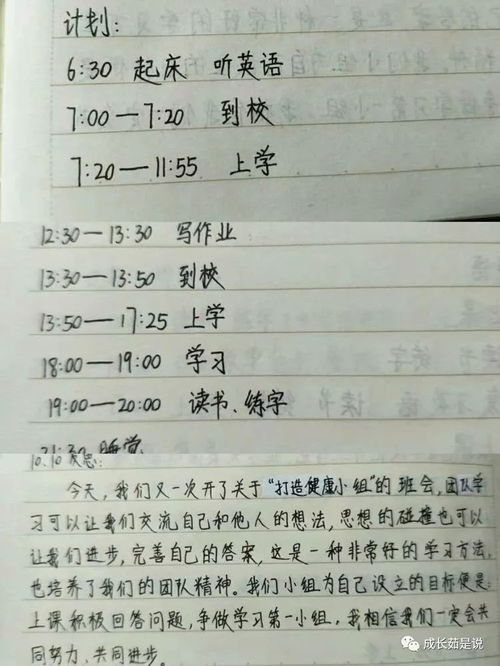 计划:
6:30 起床 听英语
7:00—7:20 到校
7:20—11:55 上学
12:30—13:30 写作业
13:30—13:50 到校
13:50—17:25 上学
18:00—19:00 学习
19:00—20:00 读书、练字
21:30 睡觉
10.10 反思:
今天,我们又一次开了关于“打造健康小组”的班会,团队学
习可以让我们交流自己和他人的想法,思想的碰撞也可以
让我们进步,完善自己的答案,这是一种非常好的学习方法,
也培养了我们的团队精神。我们小组为自己设立的目标便是:
上课积极回答问题,争做学习第一小组,我相信我们一定会共
同努力、共同进步。
成长茹是说